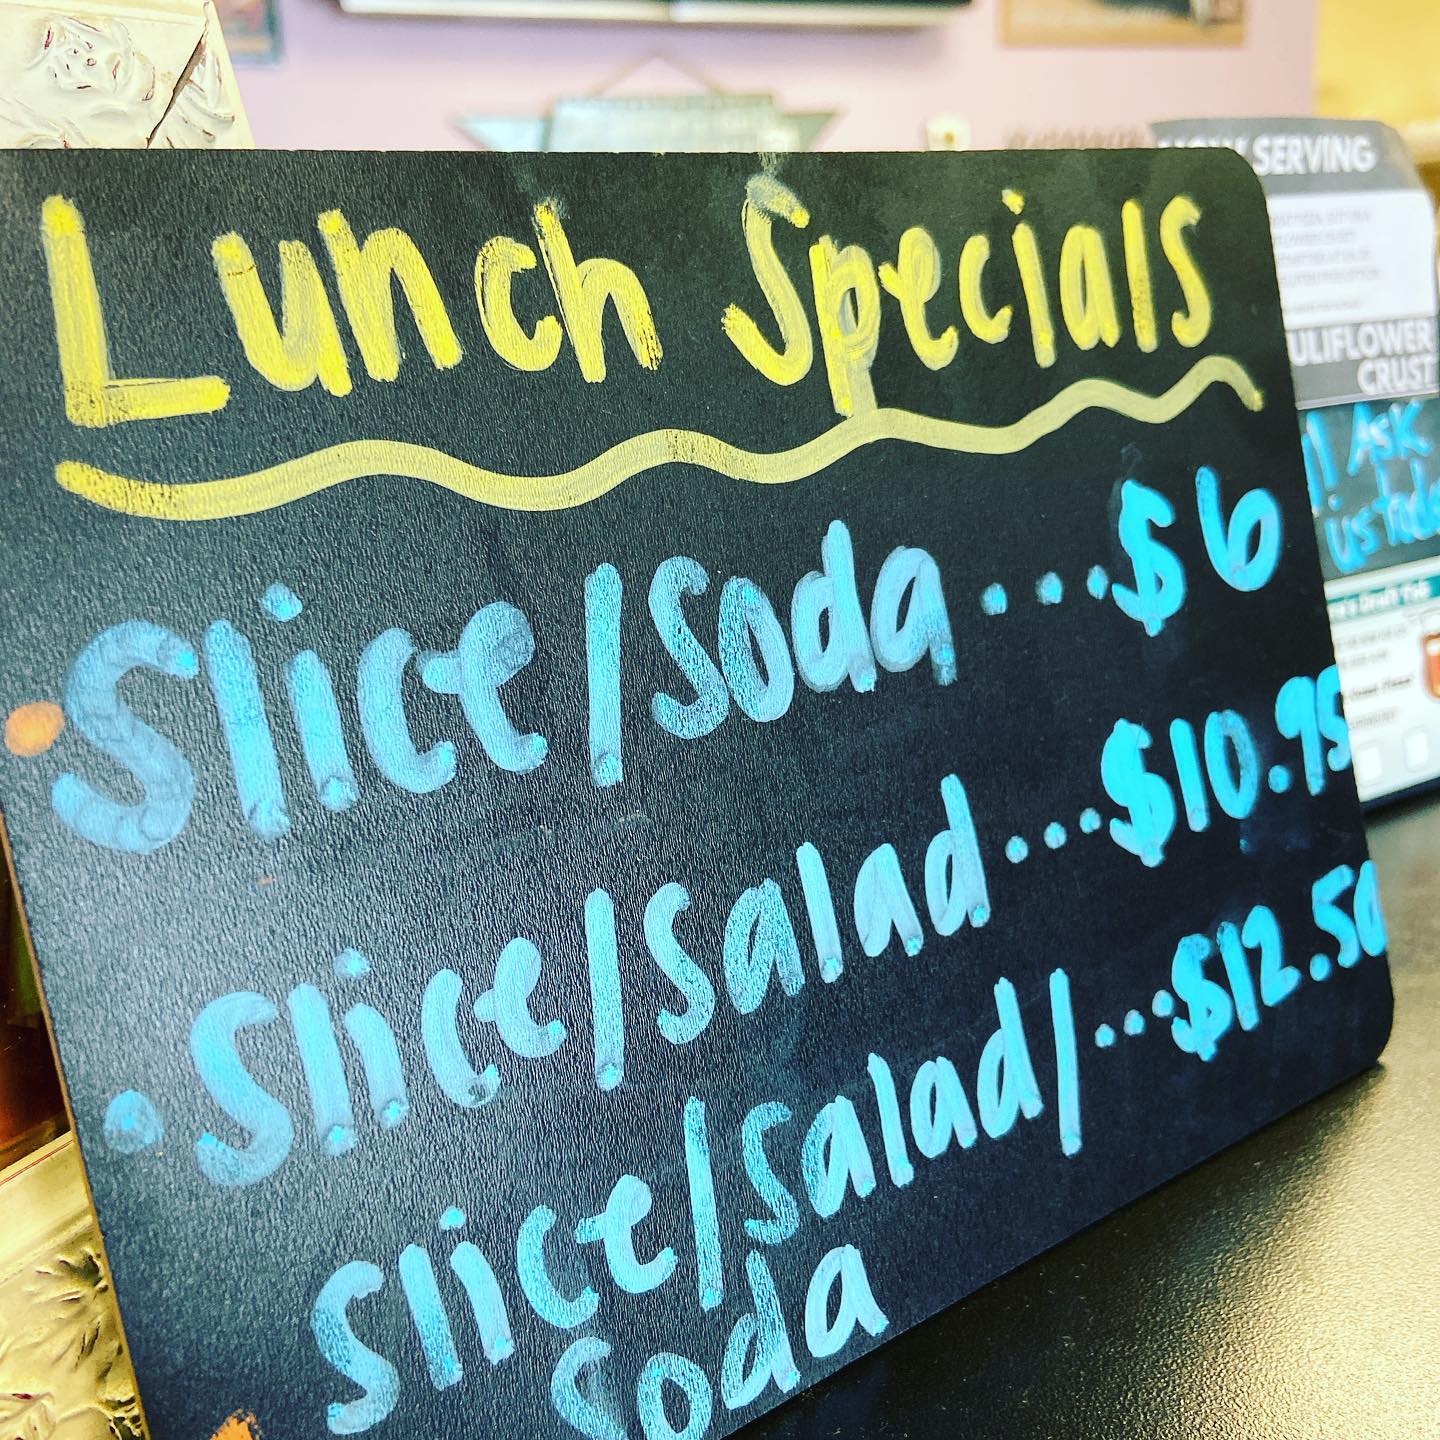 Lunch Specials
• Slice/Soda...$6
• Slice/Salad...$10.95
Slice/Salad/...$12.50
Soda
NOW SERVING
ULIFLOWER
CRUST
! ASK